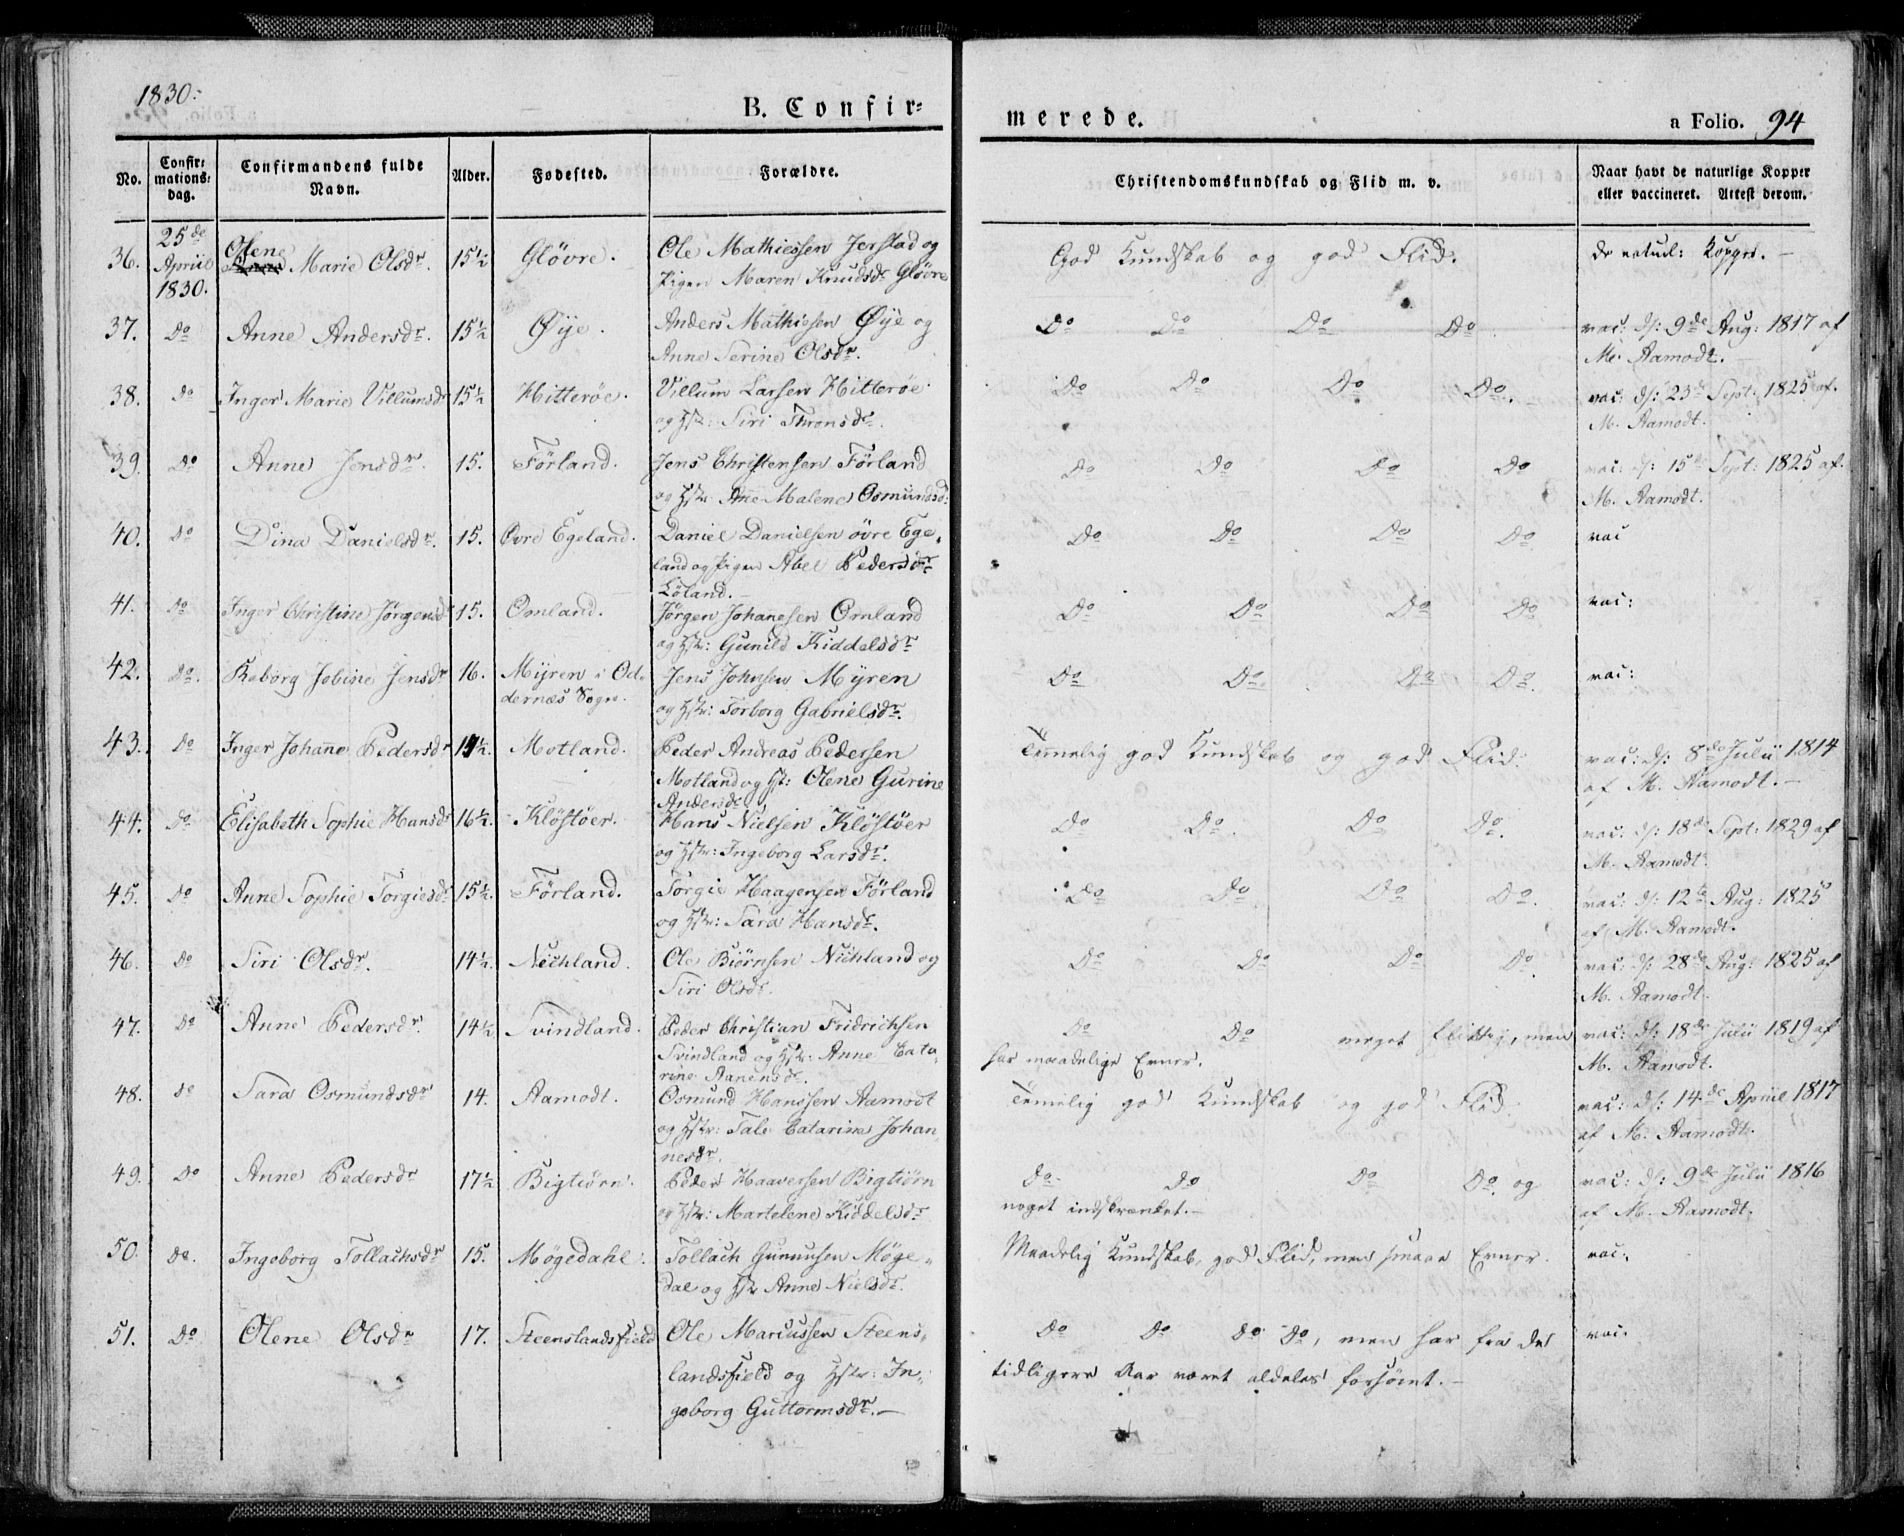 1830.
B. Confir=
merede.
a Folio. 94
No.
Confir= mations= dag.
Confirmandens fulde Navn.
Alder.
Fødested.
Forældre.
Christendomskundskab og Flid m. v.
Naar havt de naturlige Kopper eller vaccineret. Attest derom.
36. 25de Apriil 1830. Olene Marie Olsdr. 15½ Gløvre. Ole Mathiessen Jerstad og God Kundskab og god Flid. de naturl: Kopper. –
Pigen Maren Knudsdr Gløvre
37. Do Anne Andersdr. 15½ Øÿe. Anders Mathiesen Øÿe og Do Do Do Do. vac: d: 9de Aug: 1817 af
Anne Serine Olsdr. M. Aamodt. –
38. Do Inger Marie Villumsdr 15½ Hitterøe. Villum Larsen Hitterøe Do Do Do Do. vac: d: 23de Sept: 1825 af
og Hstr: Siri Thronsdr. M. Aamodt.
39. Do Anne Jensdr. 15. Førland. Jens Christensen Førland Do Do Do Do vac: d: 15de Sept: 1825 af
og Hstr: Ane Malene Osmundsd: M. Aamodt.
40. Do Dina Danielsdr. 15. Øvre Egeland. Daniel Danielsen øvre Ege= Do Do Do Do vac
land og Pigen Abel Pedersdr
Løland. –
41. Do Inger Christine Jørgensd 15. Omland. Jørgen Johanesen Omland Do Do Do Do vac:
og Hstr: Gunild Kiddelsdr
42. Do. Kaborg Jobine Jensdr 16. Myren i Od= Jens Johnsen Myren Do Do Do Do. vac:
dernæs Sogn. og Hstr: Torborg Gabrielsdr.
43. Do Inger Johane Pedersdr Motland. Peder Andreas Pedersen Temelig god Kundskab og god Flid. vac: d: 8de Julii 1814
Motland og Hst: Olene Gurine af M. Aamodt. –
Andersdr
44. Do Elisabeth Sophie Hansdr 16½. Kløstøer. Hans Nielsen Kløstøer Do Do. Do Do. vac: d: 18de Sept: 1829 af
og Hstr: Ingeborg Larsdr. M. Aamodt.
45. Do Anne Sophie Torgiesdr 15½. Førland. Torgie Haagensen Førland Do Do Do Do. vac: d: 12te Aug: 1825
og Hstr: Sara Hansdr. af M. Aamodt.
46. Do Siri Olsdr. 14½. Nichland. Ole Biørnsen Nichland og Do Do Do Do. vac: d: 28de Aug: 1825 af
Siri Olsdr. M. Aamodt.
47. Do Anne Pedersdr. 14½ Svindland. Peder Christian Fridrichsen Do Do meget flittig, men vac: d: 18de Julii 1819 af
Svindland og Hstr: Anne Cata= har maadelige Evner. M. Aamodt.
rine Aanensdr.
48. Do Sara Osmundsdr 14. Aamodt. Osmund Hanssen Aamodt Temelig god Kundskab og god Flid. vac: d: 14de Apriil 1817
og Hstr: Tale Catarina Johan= af M. Aamodt.
nesdr.
49. Do Anne Pedersdr 17½ Bigtiørn. Peder Haaversen Bigtiørn Do Do Do Do og vac: d: 9de Julii 1816
og Hstr: Martelene Kiddelsdr noget indskrænket. – af M. Aamodt.
50. Do. Ingeborg Tollachsdr 15. Møgedahl. Tollach Gunnusen Møge= Maadelig Kundskab, god Flid, men smaae Evner. vac.
dal og Hstr Anne Nielsdr.
51. Do Olene Olsdr 17. Steenslandsfield Ole Marcussen Steens= Do Do Do Do, men har fra de vac.
landsfield og Hstr: In= tidligere Aar været aldeles forsømt. –
geborg Guttormsdr. –